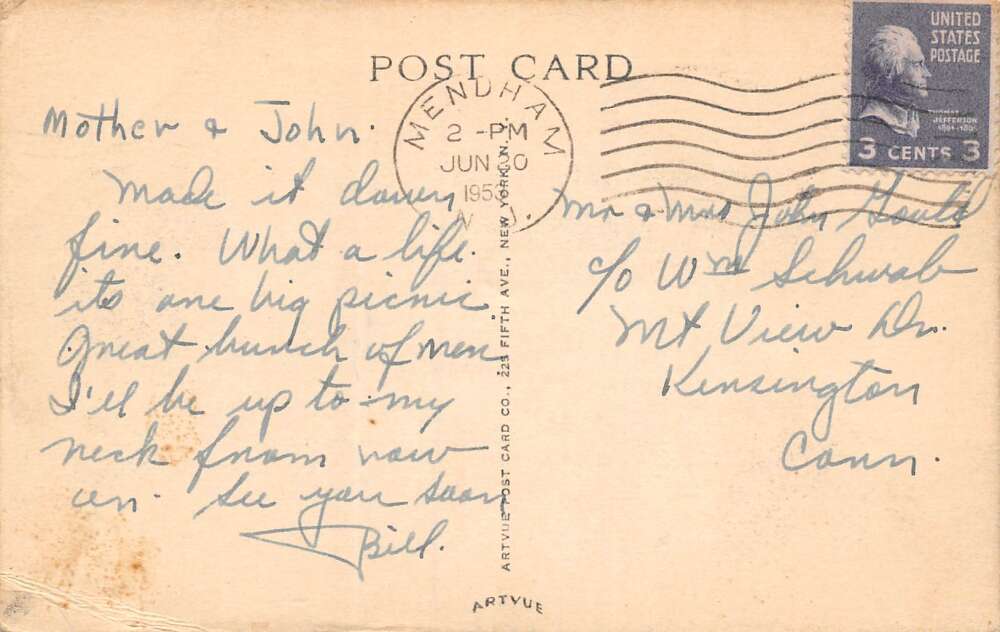 POST CARD
UNITED
STATES
POSTAGE
JEFFERSON
3 CENTS 3
MENDHAM
2 -PM
JUN 30
1953
N. J.
Mother & John.
Made it down
fine. What a life.
its one big picnic
Great bunch of men
I'll be up to my
neck from now
on. See you soon
Bill.
Mr & Mrs John
c/o Wm Schwab
Mt View Dr.
Kensington
Conn.
ARTVUE POST CARD CO., 225 FIFTH AVE., NEW YORK, N. Y.
ARTVUE